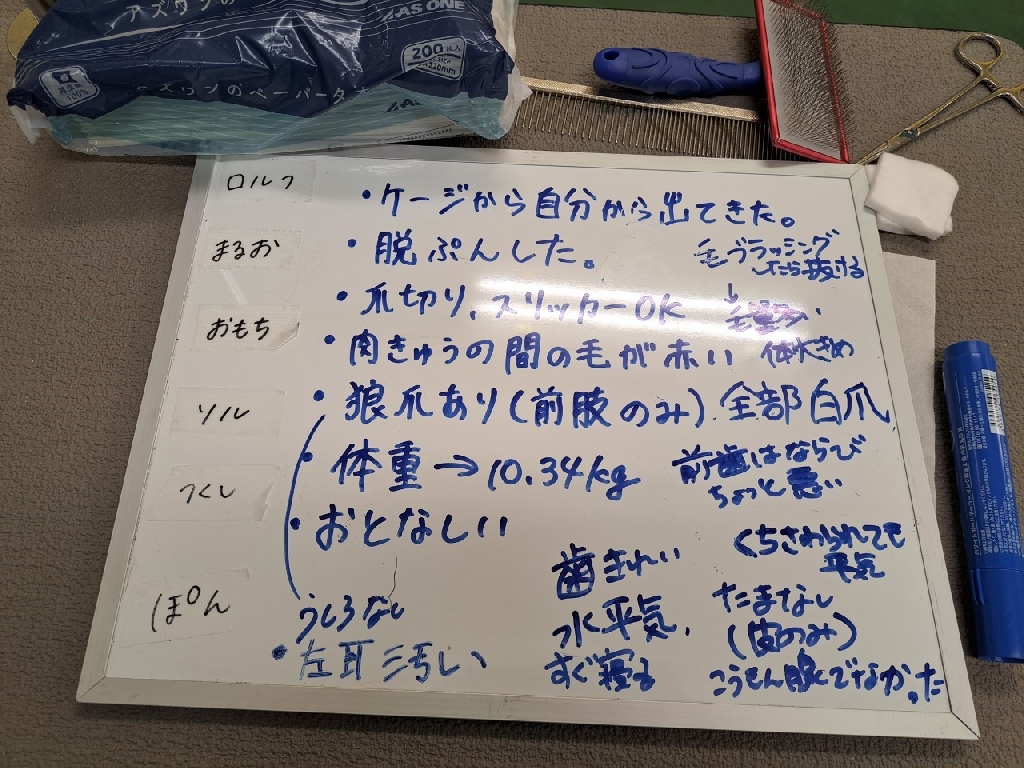 アズワンの
AS ONE
200枚入
アズワンのペーパータ
ロルフ
まるお
おもち
ソル
つくし
ぽん
・ケージから自分から出てきた。
・脱ぷんした。
毛ブラッシング
したら抜ける
↓
・爪切り、スリッカーOK
毛量多い
・肉きゅうの間の毛が赤い
体大きめ
・狼爪あり(前肢のみ).全部白爪
・体重→10.34kg
前歯はならび
ちょっと悪い
・おとなしい
くちさわられても
平気
歯きれい
うしろなし
水平気、
たまなし
(皮のみ)
・左耳汚い
すぐ寝る
こうもん腺でなかった